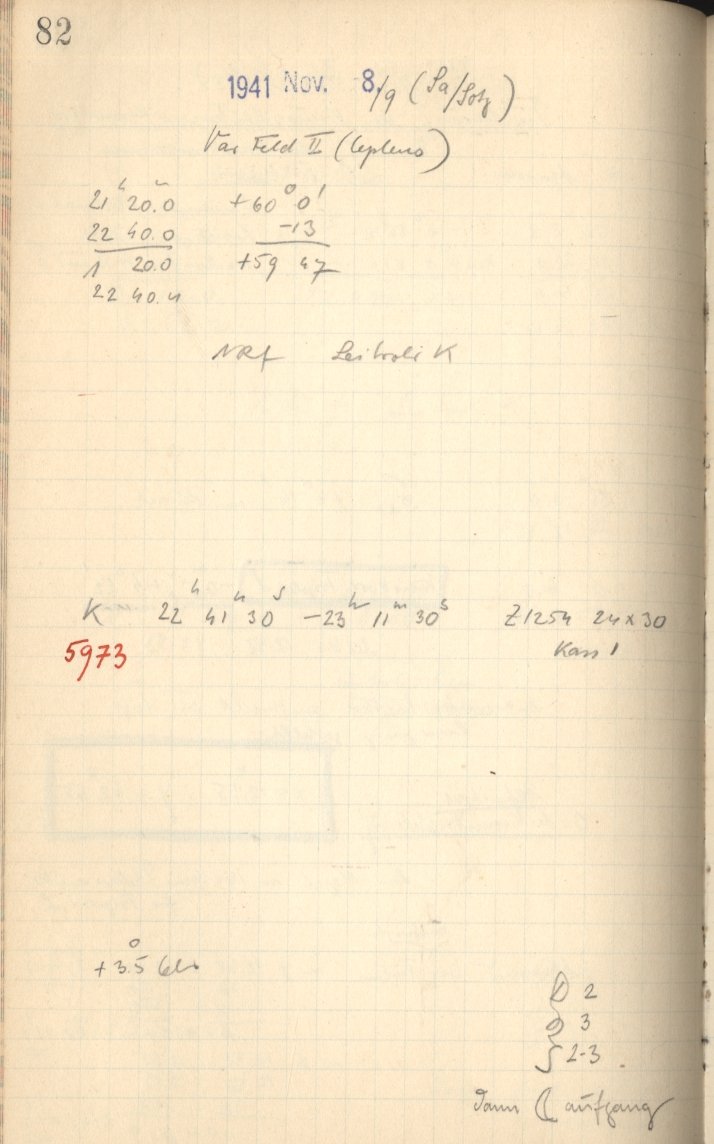 82
1941 Nov. 8./9 (Sa/Sotg)
Var Feld II (Cepheus)
21ʰ 20.0ᵐ +60° 0'
22 40.0 -13
1 20.0 +59 47
22 40.4
NRf K
K 22ʰ 41ᵐ 30ˢ -23ʰ 11ᵐ 30ˢ Z1254 24x30
5973 Kass 1
+3.5°
D 2
3
S 2-3
Dann ☾ aufgang